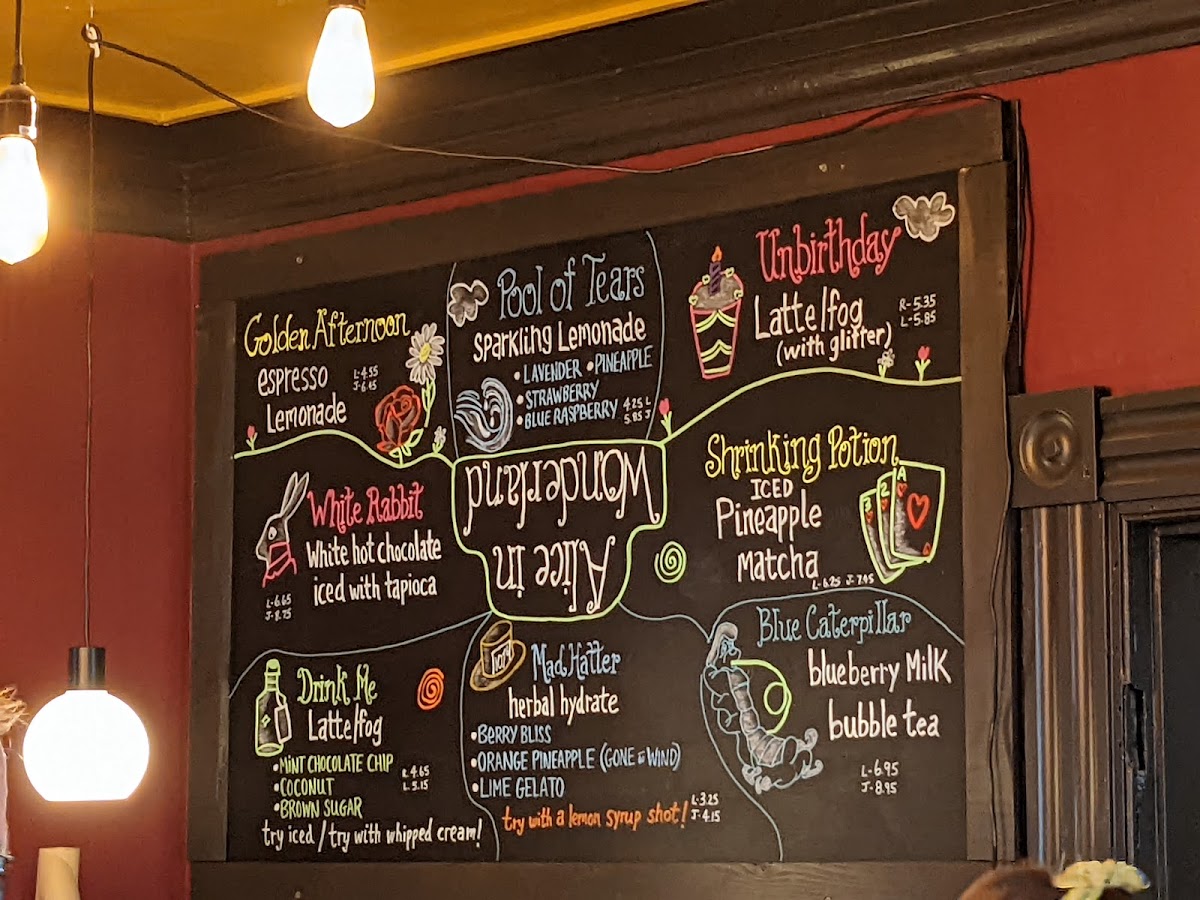 Golden Afternoon
espresso
Lemonade
L-4.55
J-6.45
Pool of Tears
sparkling Lemonade
• LAVENDER • PINEAPPLE
• STRAWBERRY
• BLUE RASPBERRY
4.25 L
5.85 J
Unbirthday
Latte/fog
(with glitter)
R-5.35
L-5.85
White Rabbit
White hot chocolate
iced with tapioca
L-6.65
J-8.75
Alice in
Wonderland
Shrinking Potion
ICED
Pineapple
matcha
L-6.25 J-7.95
3
2
A
Drink Me
Latte/fog
• MINT CHOCOLATE CHIP
• COCONUT
• BROWN SUGAR
R 4.65
L 5.15
try iced / try with whipped cream!
Mad Hatter
herbal hydrate
• BERRY BLISS
• ORANGE PINEAPPLE (GONE W WIND)
• LIME GELATO
try with a lemon syrup shot!
L-3.25
J-4.15
Blue Caterpillar
blueberry Milk
bubble tea
L-6.95
J-8.95